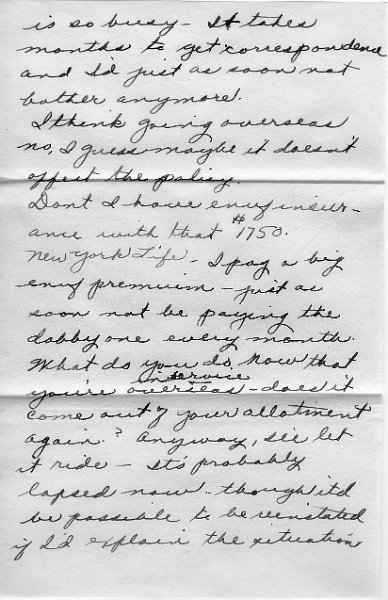 is so busy - It takes
months to get correspondence
and I'd just as soon not
bother anymore.
I think going overseas
no, I guess maybe it doesn't
affect the policy.
Dont I have enuf insur-
ance with that $1750.
New York Life - I pay a big
enuf premium - just as
soon not be paying the
dabby one every month.
What do you do now that
in service
you're overseas - does it
come out of your allotment
again? Anyway, I'll let
it ride - It's probably
lapsed now - though it'd
be possible to be reinstated
if I'd explain the situation